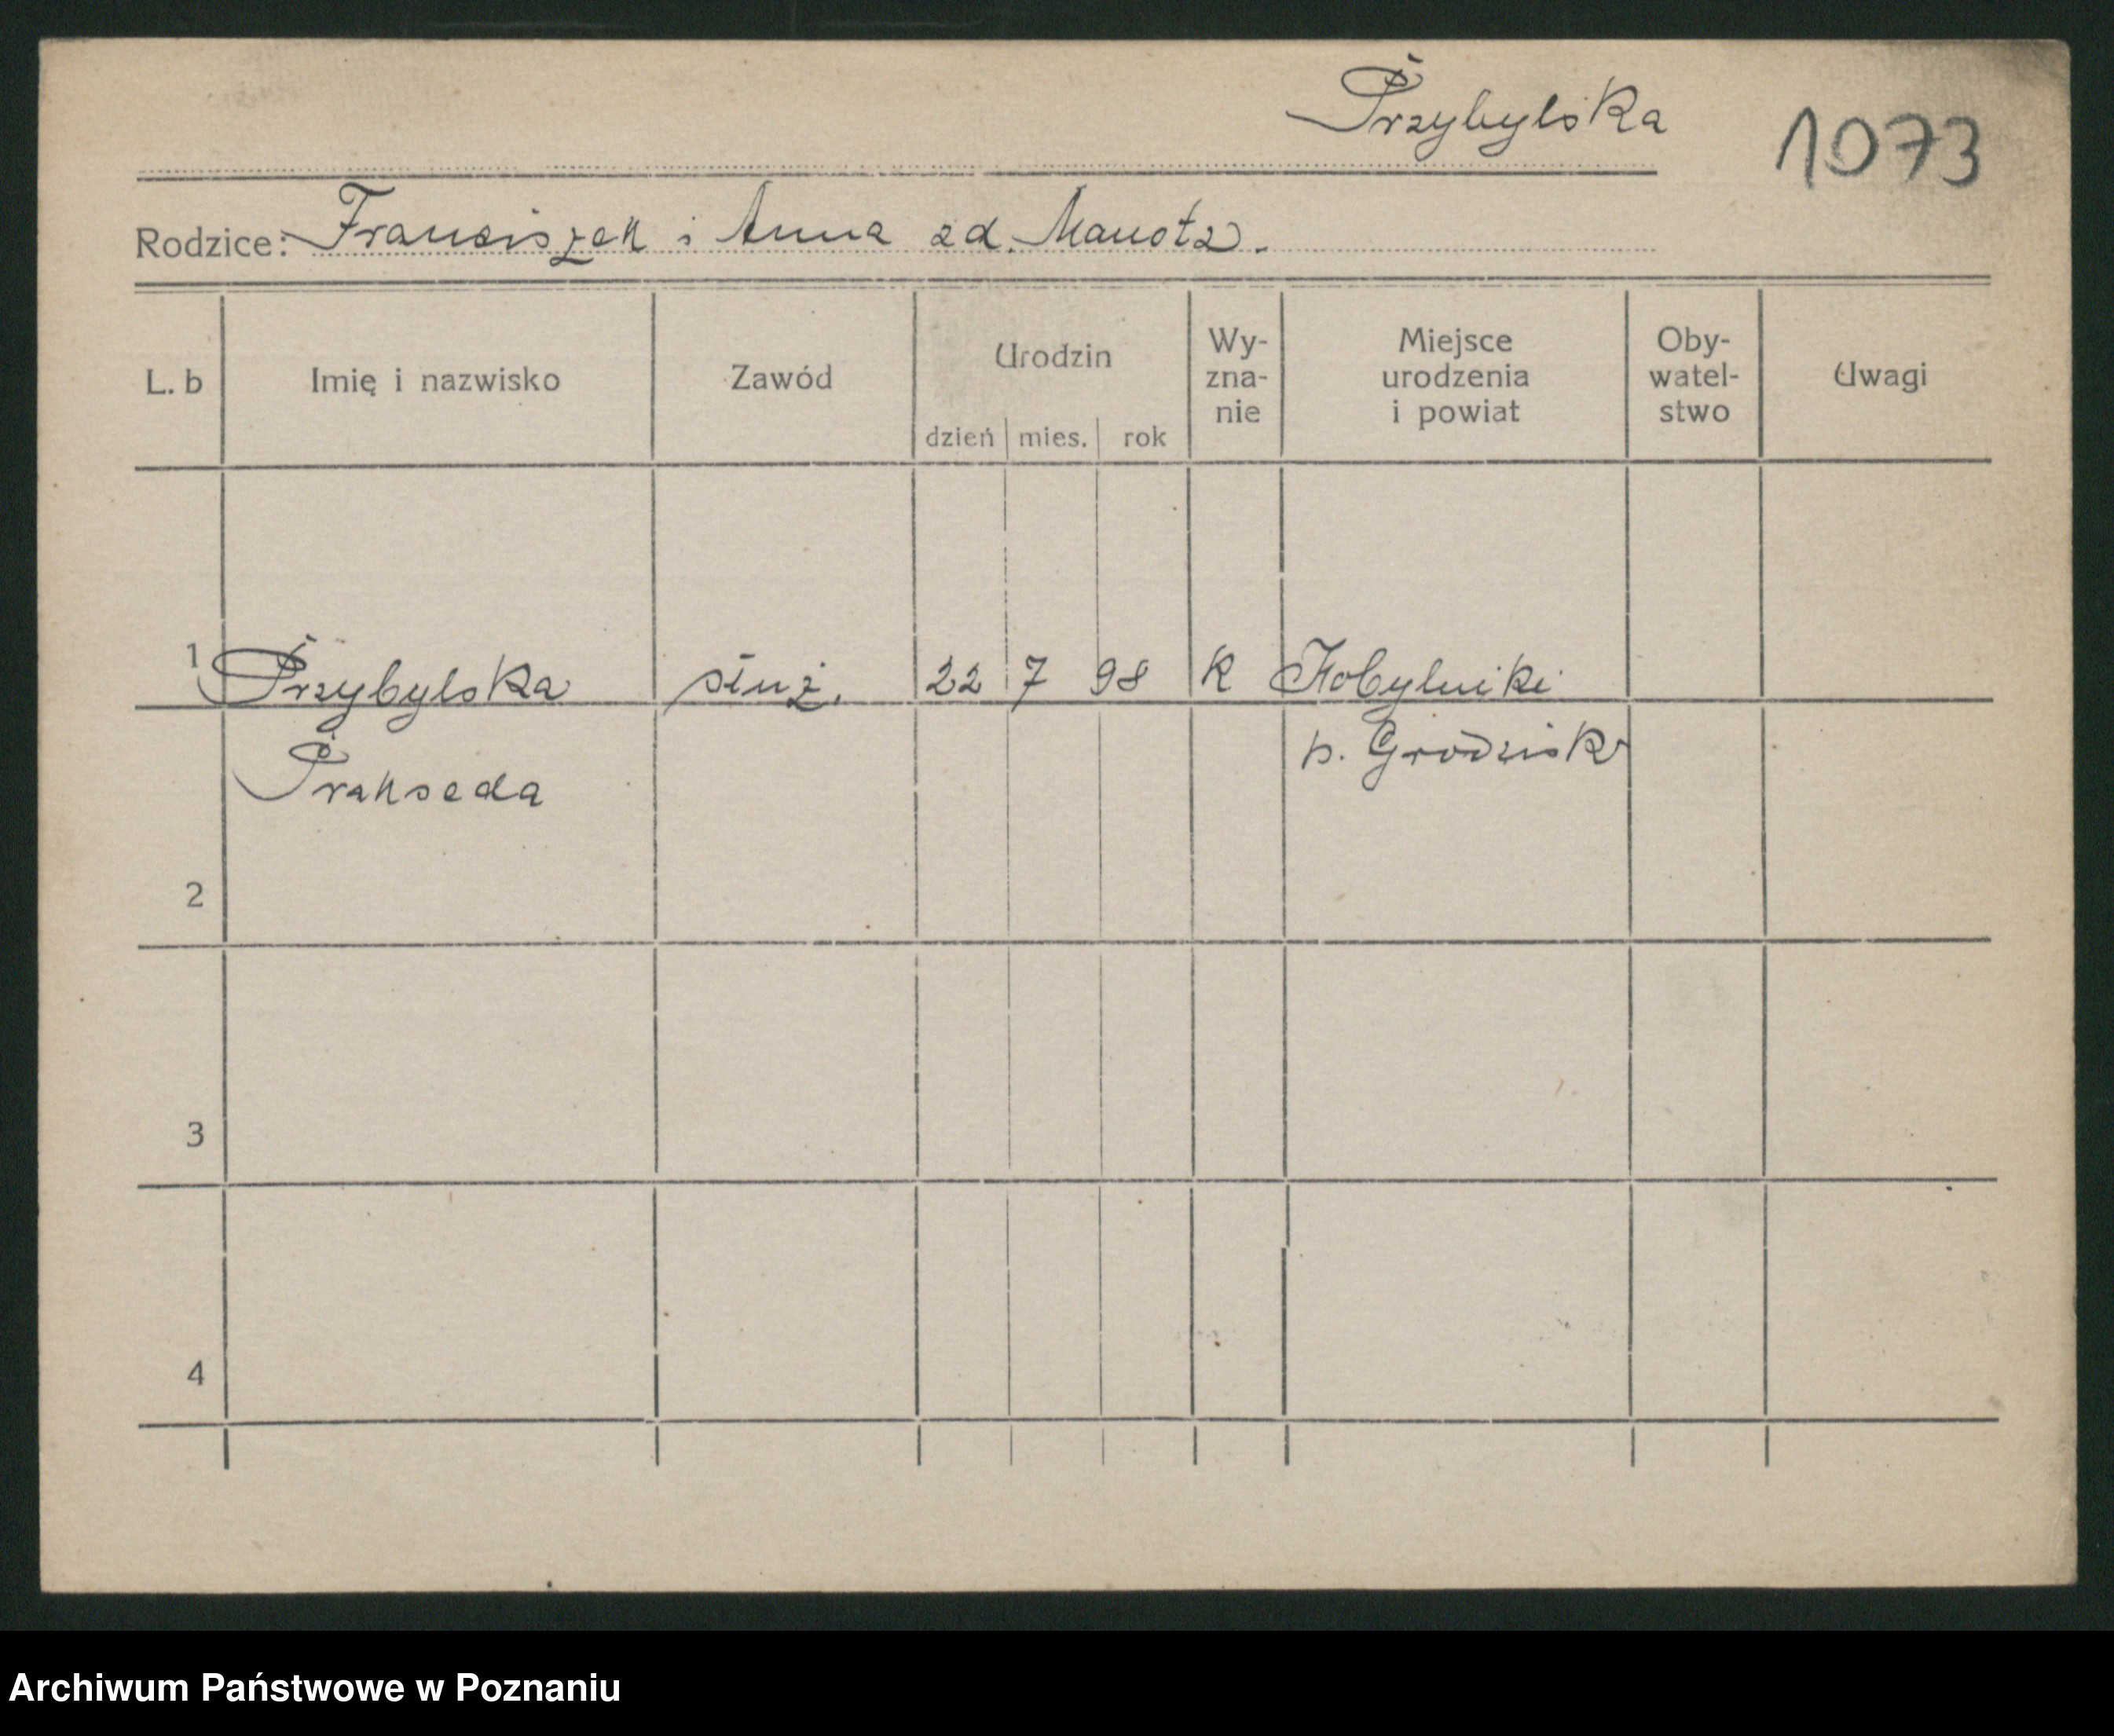 Przybylska
1073
Rodzice: Franciszek i Anna zd. Manotz.
L. b
Imię i nazwisko
Zawód
Urodzin
dzień mies. rok
Wy-
zna-
nie
Miejsce
urodzenia
i powiat
Oby-
watel-
stwo
Uwagi
1 Przybylska służ. 22 7 98 k Kobylniki
Prakseda p. Grodzisk
2
3
4
Archiwum Państwowe w Poznaniu